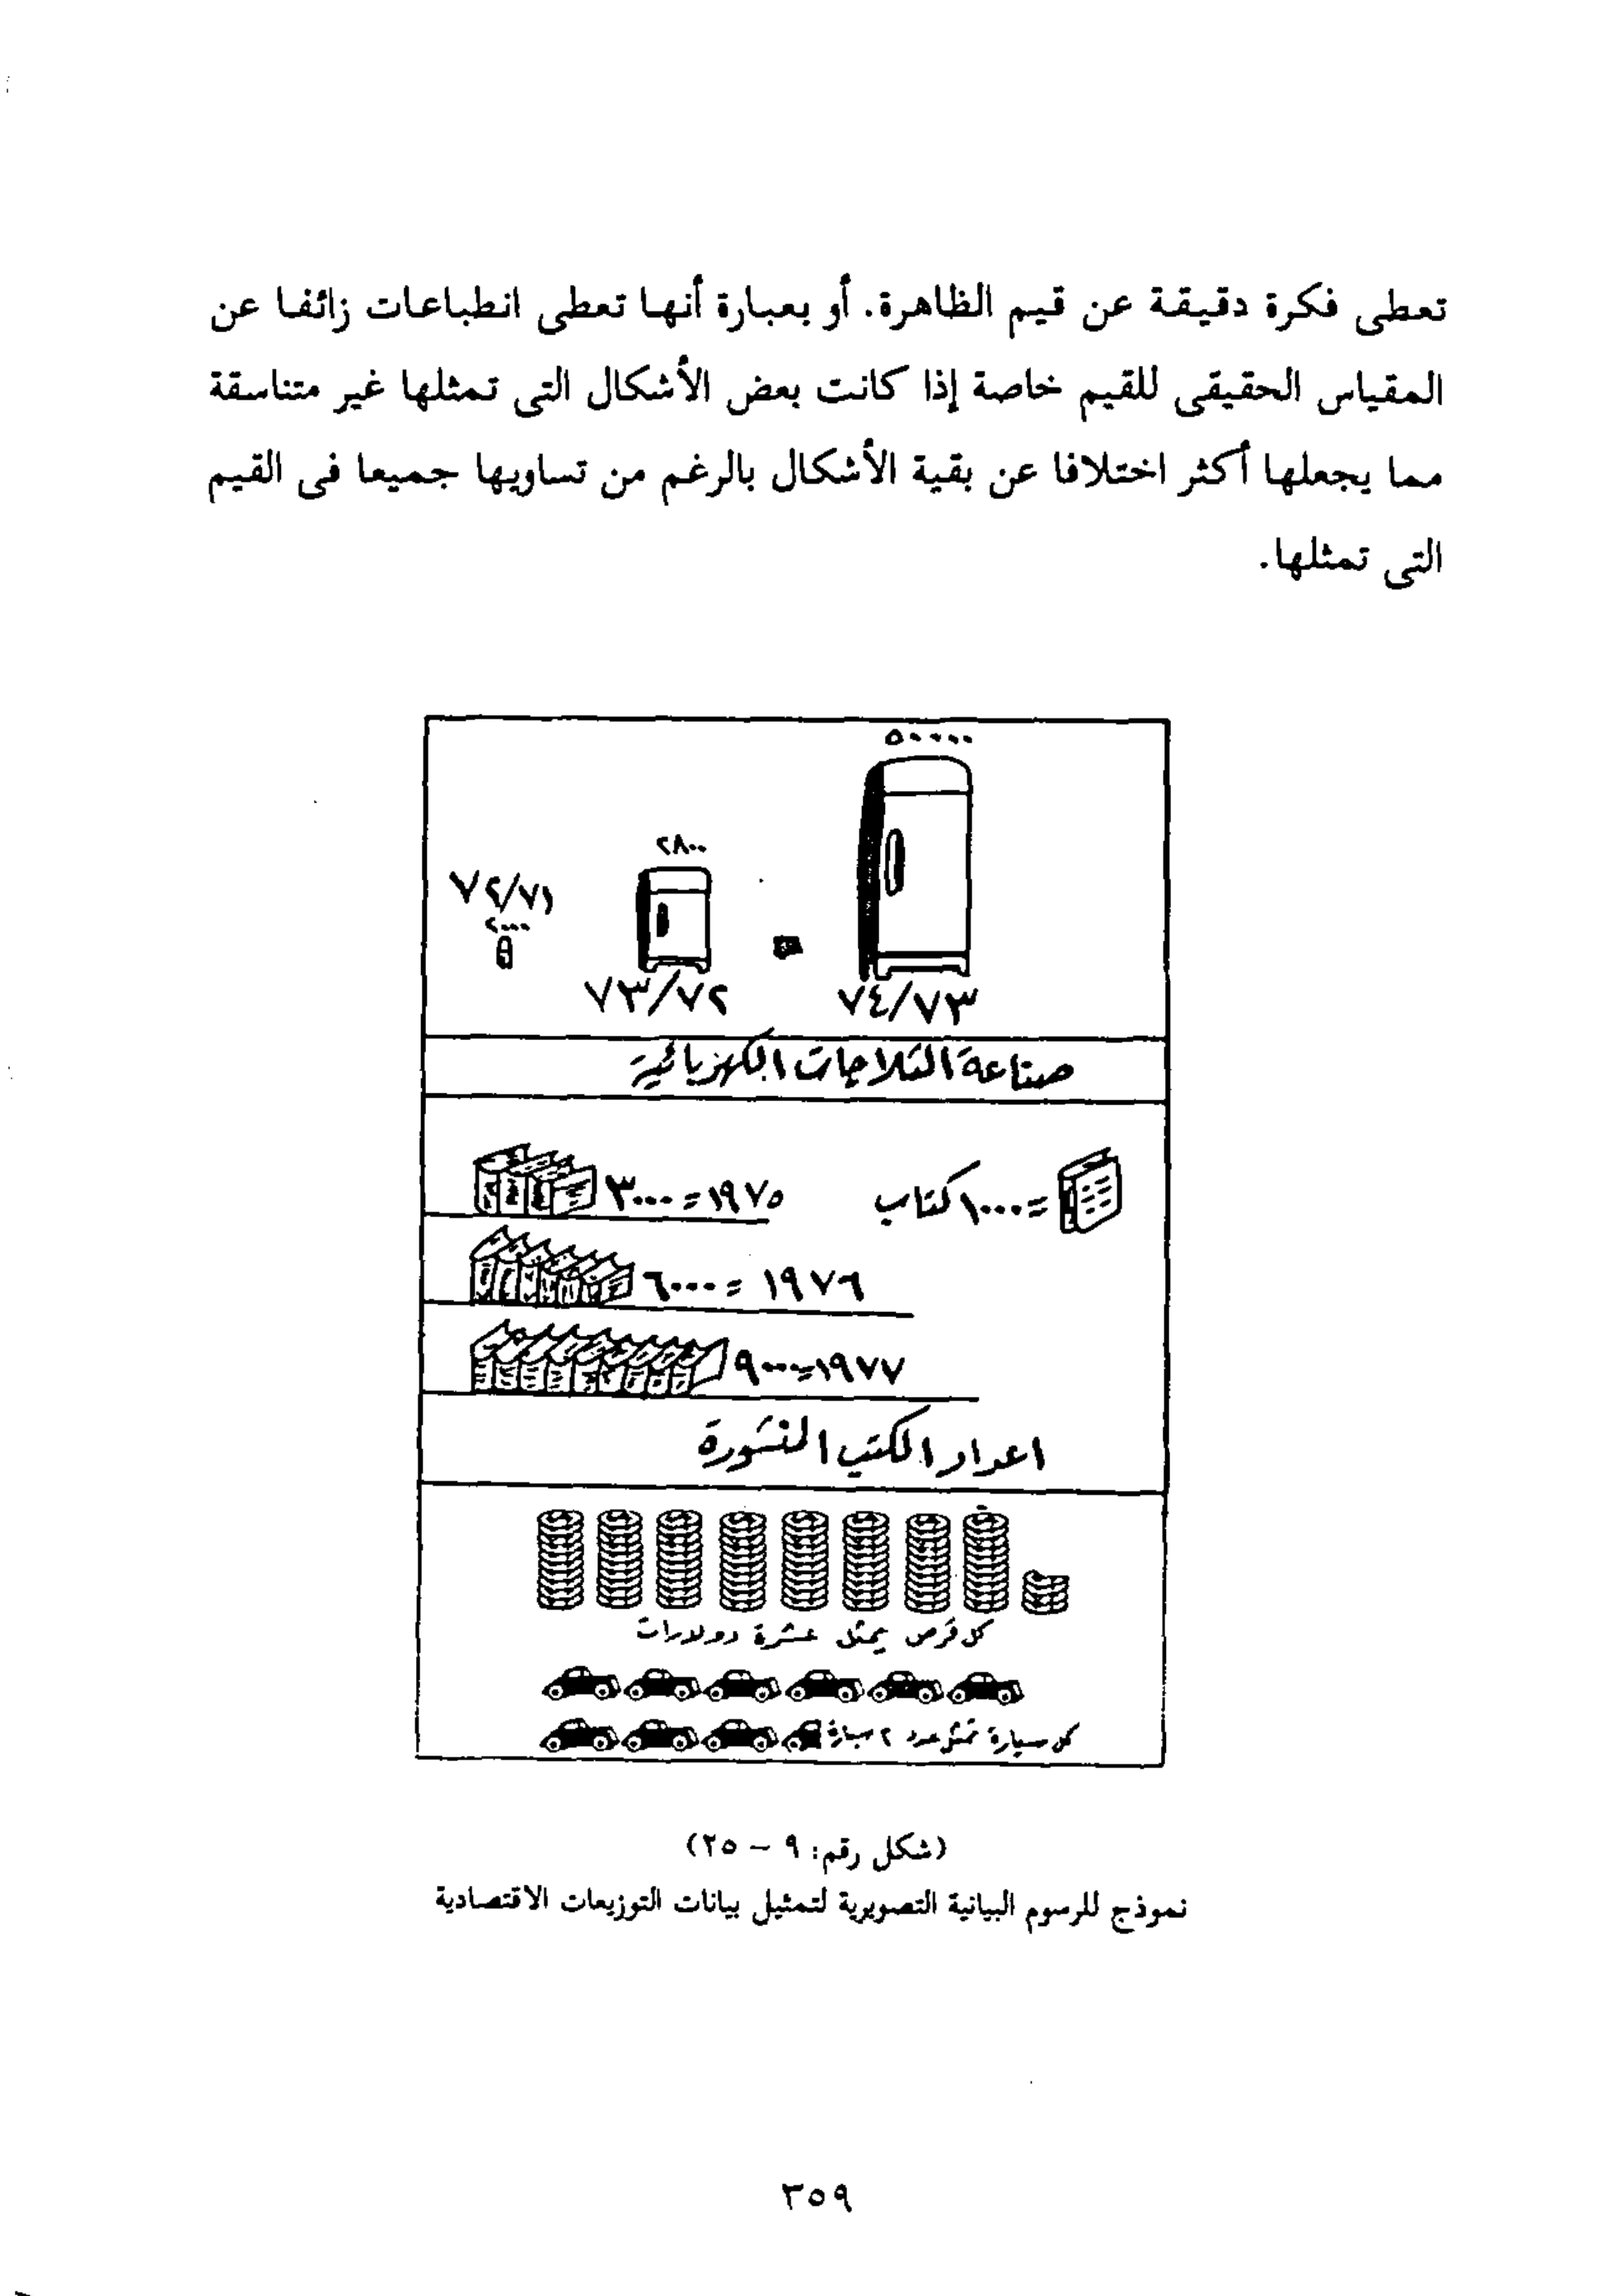 تعطى فكرة دقيقة عن قيم الظاهرة. أو بعبارة أنها تعطى انطباعات زائفا عن
المقياس الحقيقى للقيم خاصة إذا كانت بعض الأشكال التى تمثلها غير متناسقة
مما يجعلها أكثر اختلافا عن بقية الأشكال بالرغم من تساويها جميعا فى القيم
التى تمثلها.
٥٠٠٠٠
٢٨٠٠
٧٢/٧١
٢٠٠٠
٧٣/٧٢
٧٤/٧٣
صناعة الثلاجات الكهربائية
= ١٠٠٠ كتاب
١٩٧٥ = ٣٠٠٠
١٩٧٦ = ٦٠٠٠
١٩٧٧ = ٩٠٠٠
اعداد الكتب المنشورة
كل قرص يمثل عشرة دولارات
كل سيارة تمثل عدد ٢ سيارة
(شكل رقم: ٩ – ٢٥)
نموذج للرسوم البيانية التصويرية لتمثيل بيانات التوزيعات الاقتصادية
٣٥٩